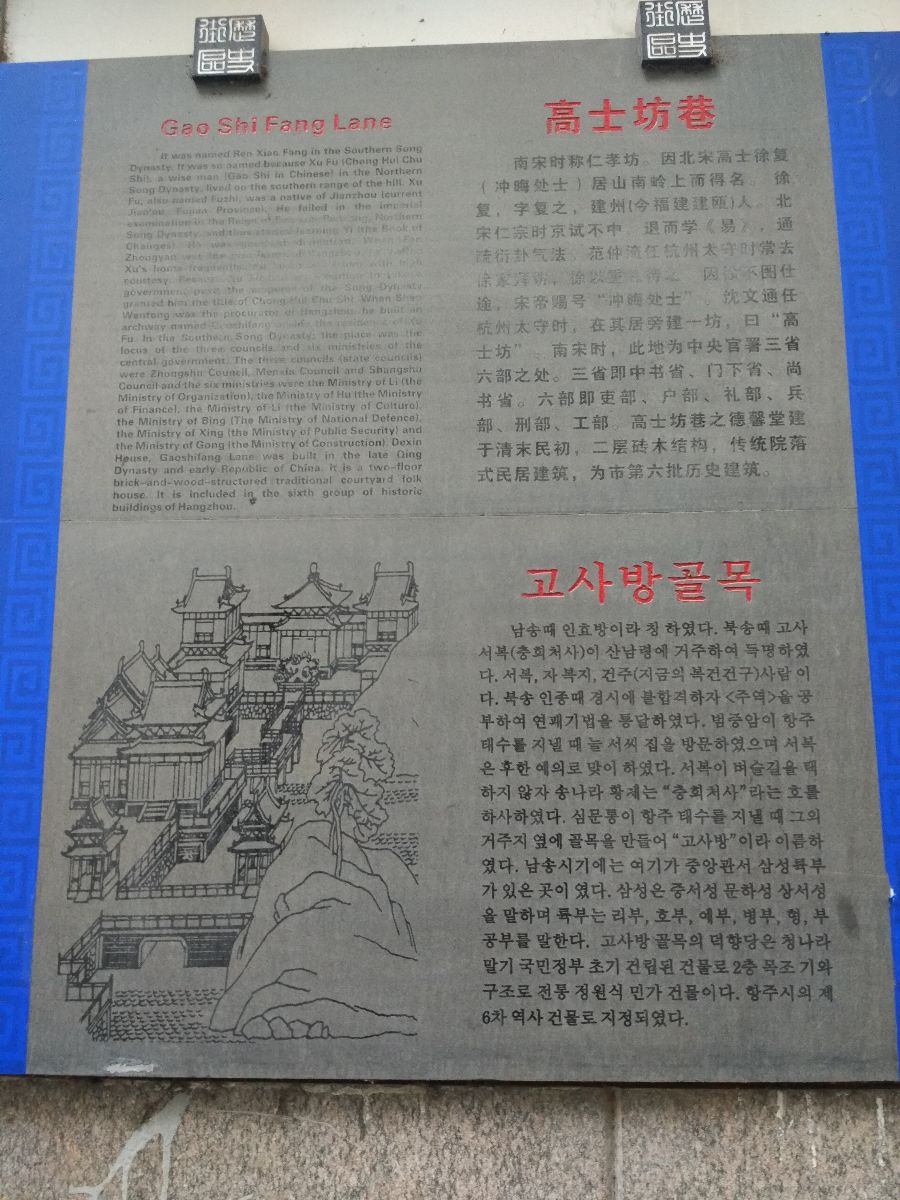 历史
街区
历史
街区
Gao Shi Fang Lane
It was named Ren Xiao Fang in the Southern Song
Dynasty. It was so named because Xu Fu (Chong Hui Chu
Shi), a wise man (Gao Shi in Chinese) in the Northern
Song Dynasty, lived on the southern range of the hill. Xu
Fu, also named Fuzhi, was a native of Jianzhou (current
Jian'ou, Fujian Province). He failed in the imperial
examination in the Reign of Emperor Renzong, Northern
Song Dynasty, and
Changes). He was
Zhongyan was
Xu's home frequently,
courtesy.
government post, the emperor of the Song Dynasty
granted him the title of Chong Hui Chu Shi. When Shen
Wentong was the procurator of Hangzhou, he built an
archway named Gaoshifang beside the residence of Xu
Fu. In the Southern Song Dynasty, the place was the
locus of the three councils and six ministries of the
central government. The three councils (state councils)
were Zhongshu Council, Menxia Council and Shangshu
Council and the six ministries were the Ministry of Li (the
Ministry of Organization), the Ministry of Hu (the Ministry
of Finance), the Ministry of Li (the Ministry of Culture),
the Ministry of Bing (The Ministry of National Defence),
the Ministry of Xing (the Ministry of Public Security) and
the Ministry of Gong (the Ministry of Construction). Dexin
House, Gaoshifang Lane was built in the late Qing
Dynasty and early Republic of China. It is a two-floor
brick-and-wood-structured traditional courtyard folk
house. It is included in the sixth group of historic
buildings of Hangzhou.
高士坊巷
南宋时称仁孝坊。因北宋高士徐复
（冲晦处士）居山南岭上而得名。徐
复，字复之，建州(今福建建瓯)人。北
宋仁宗时京试不中，退而学《易》，通
流衍卦气法。范仲淹任杭州太守时常去
徐家拜访，徐以重礼待之。因徐不图仕
途，宋帝赐号“冲晦处士”。沈文通任
杭州太守时，在其居旁建一坊，曰“高
士坊”。南宋时，此地为中央官署三省
六部之处。三省即中书省、门下省、尚
书省。六部即吏部、户部、礼部、兵
部、刑部、工部。高士坊巷之德馨堂建
于清末民初，二层砖木结构，传统院落
式民居建筑，为市第六批历史建筑。
고사방골목
남송때 인효방이라 칭 하였다. 북송때 고사
서복(충회처사)이 산남령에 거주하여 득명하였
다. 서복, 자 복지, 건주(지금의 복건건구)사람 이
다. 북송 인종때 경시에 불합격하자 <주역>을 공
부하여 연패기법을 통달하였다. 범중암이 항주
태수를 지낼 때 늘 서씨 집을 방문하였으며 서복
은 후한 예의로 맞이 하였다. 서복이 벼슬길을 택
하지 않자 송나라 황제는 “충회처사”라는 호를
하사하였다. 심문통이 항주 태수를 지낼 때 그의
거주지 옆에 골목을 만들어 “고사방”이라 이름하
였다. 남송시기에는 여기가 중앙관서 삼성륙부
가 있은 곳이 였다. 삼성은 중서성 문하성 상서성
을 말하며 륙부는 리부, 호부, 예부, 병부, 형, 부
공부를 말한다. 고사방 골목의 덕향당은 청나라
말기 국민정부 초기 건립된 건물로 2층 목조 기와
구조로 전통 정원식 민가 건물이다. 항주시의 제
6차 역사 건물로 지정되였다.